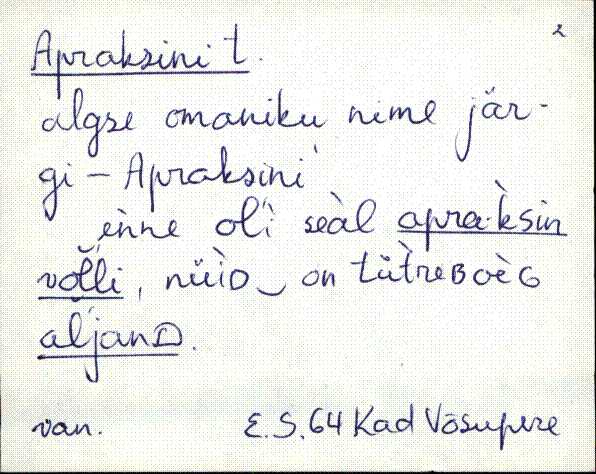 2
Apraksini t.
algse omaniku nime jär-
gi – Apraksini
enne oľi seàl apra·kšin
voľľi, nüìD on tütreʙoèG
aľjanD.
van. E.S. 64 Kad Võsupere